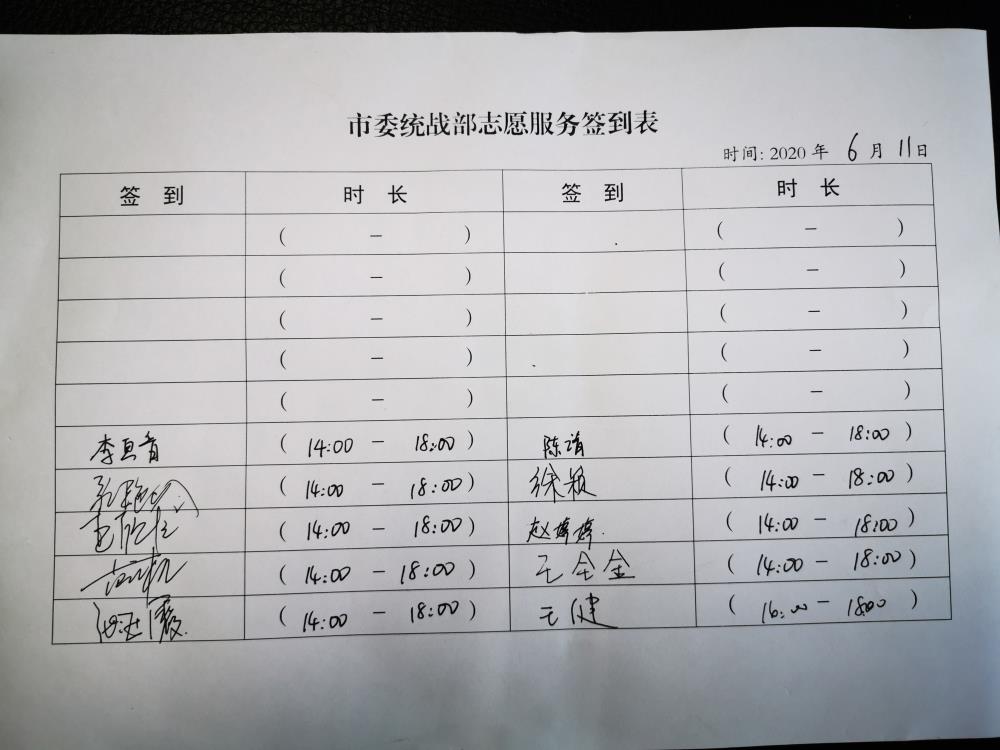 市委统战部志愿服务签到表
时间: 2020 年 6 月 11 日
签 到 时 长 签 到 时 长
( - ) ( - )
( - ) ( - )
( - ) ( - )
( - ) ( - )
( - ) ( - )
( 14:00 - 18:00 ) ( 14:00 - 18:00 )
( 14:00 - 18:00 ) 徐颖 ( 14:00 - 18:00 )
( 14:00 - 18:00 ) 赵婷婷. ( 14:00 - 18:00 )
( 14:00 - 18:00 ) 王全金 ( 14:00 - 18:00 )
( 14:00 - 18:00 ) 王健 ( 16:00 - 18:00 )